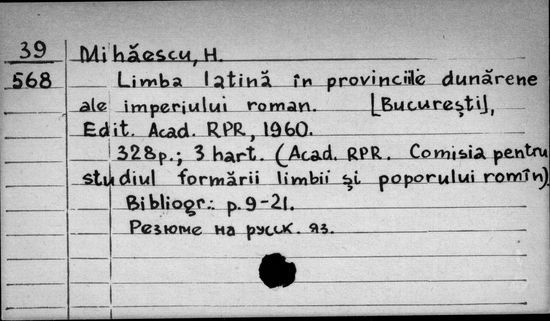 39 Mihăescu, H.
568 Limba latină în provinciile dunărene
ale imperiului roman. [București],
Edit. Acad. RPR, 1960.
328p.; 3 hart. (Acad. RPR. Comisia pentru
studiul formării limbii și poporului romîn)
Bibliogr.: p. 9-21.
Резюме на русск. яз.